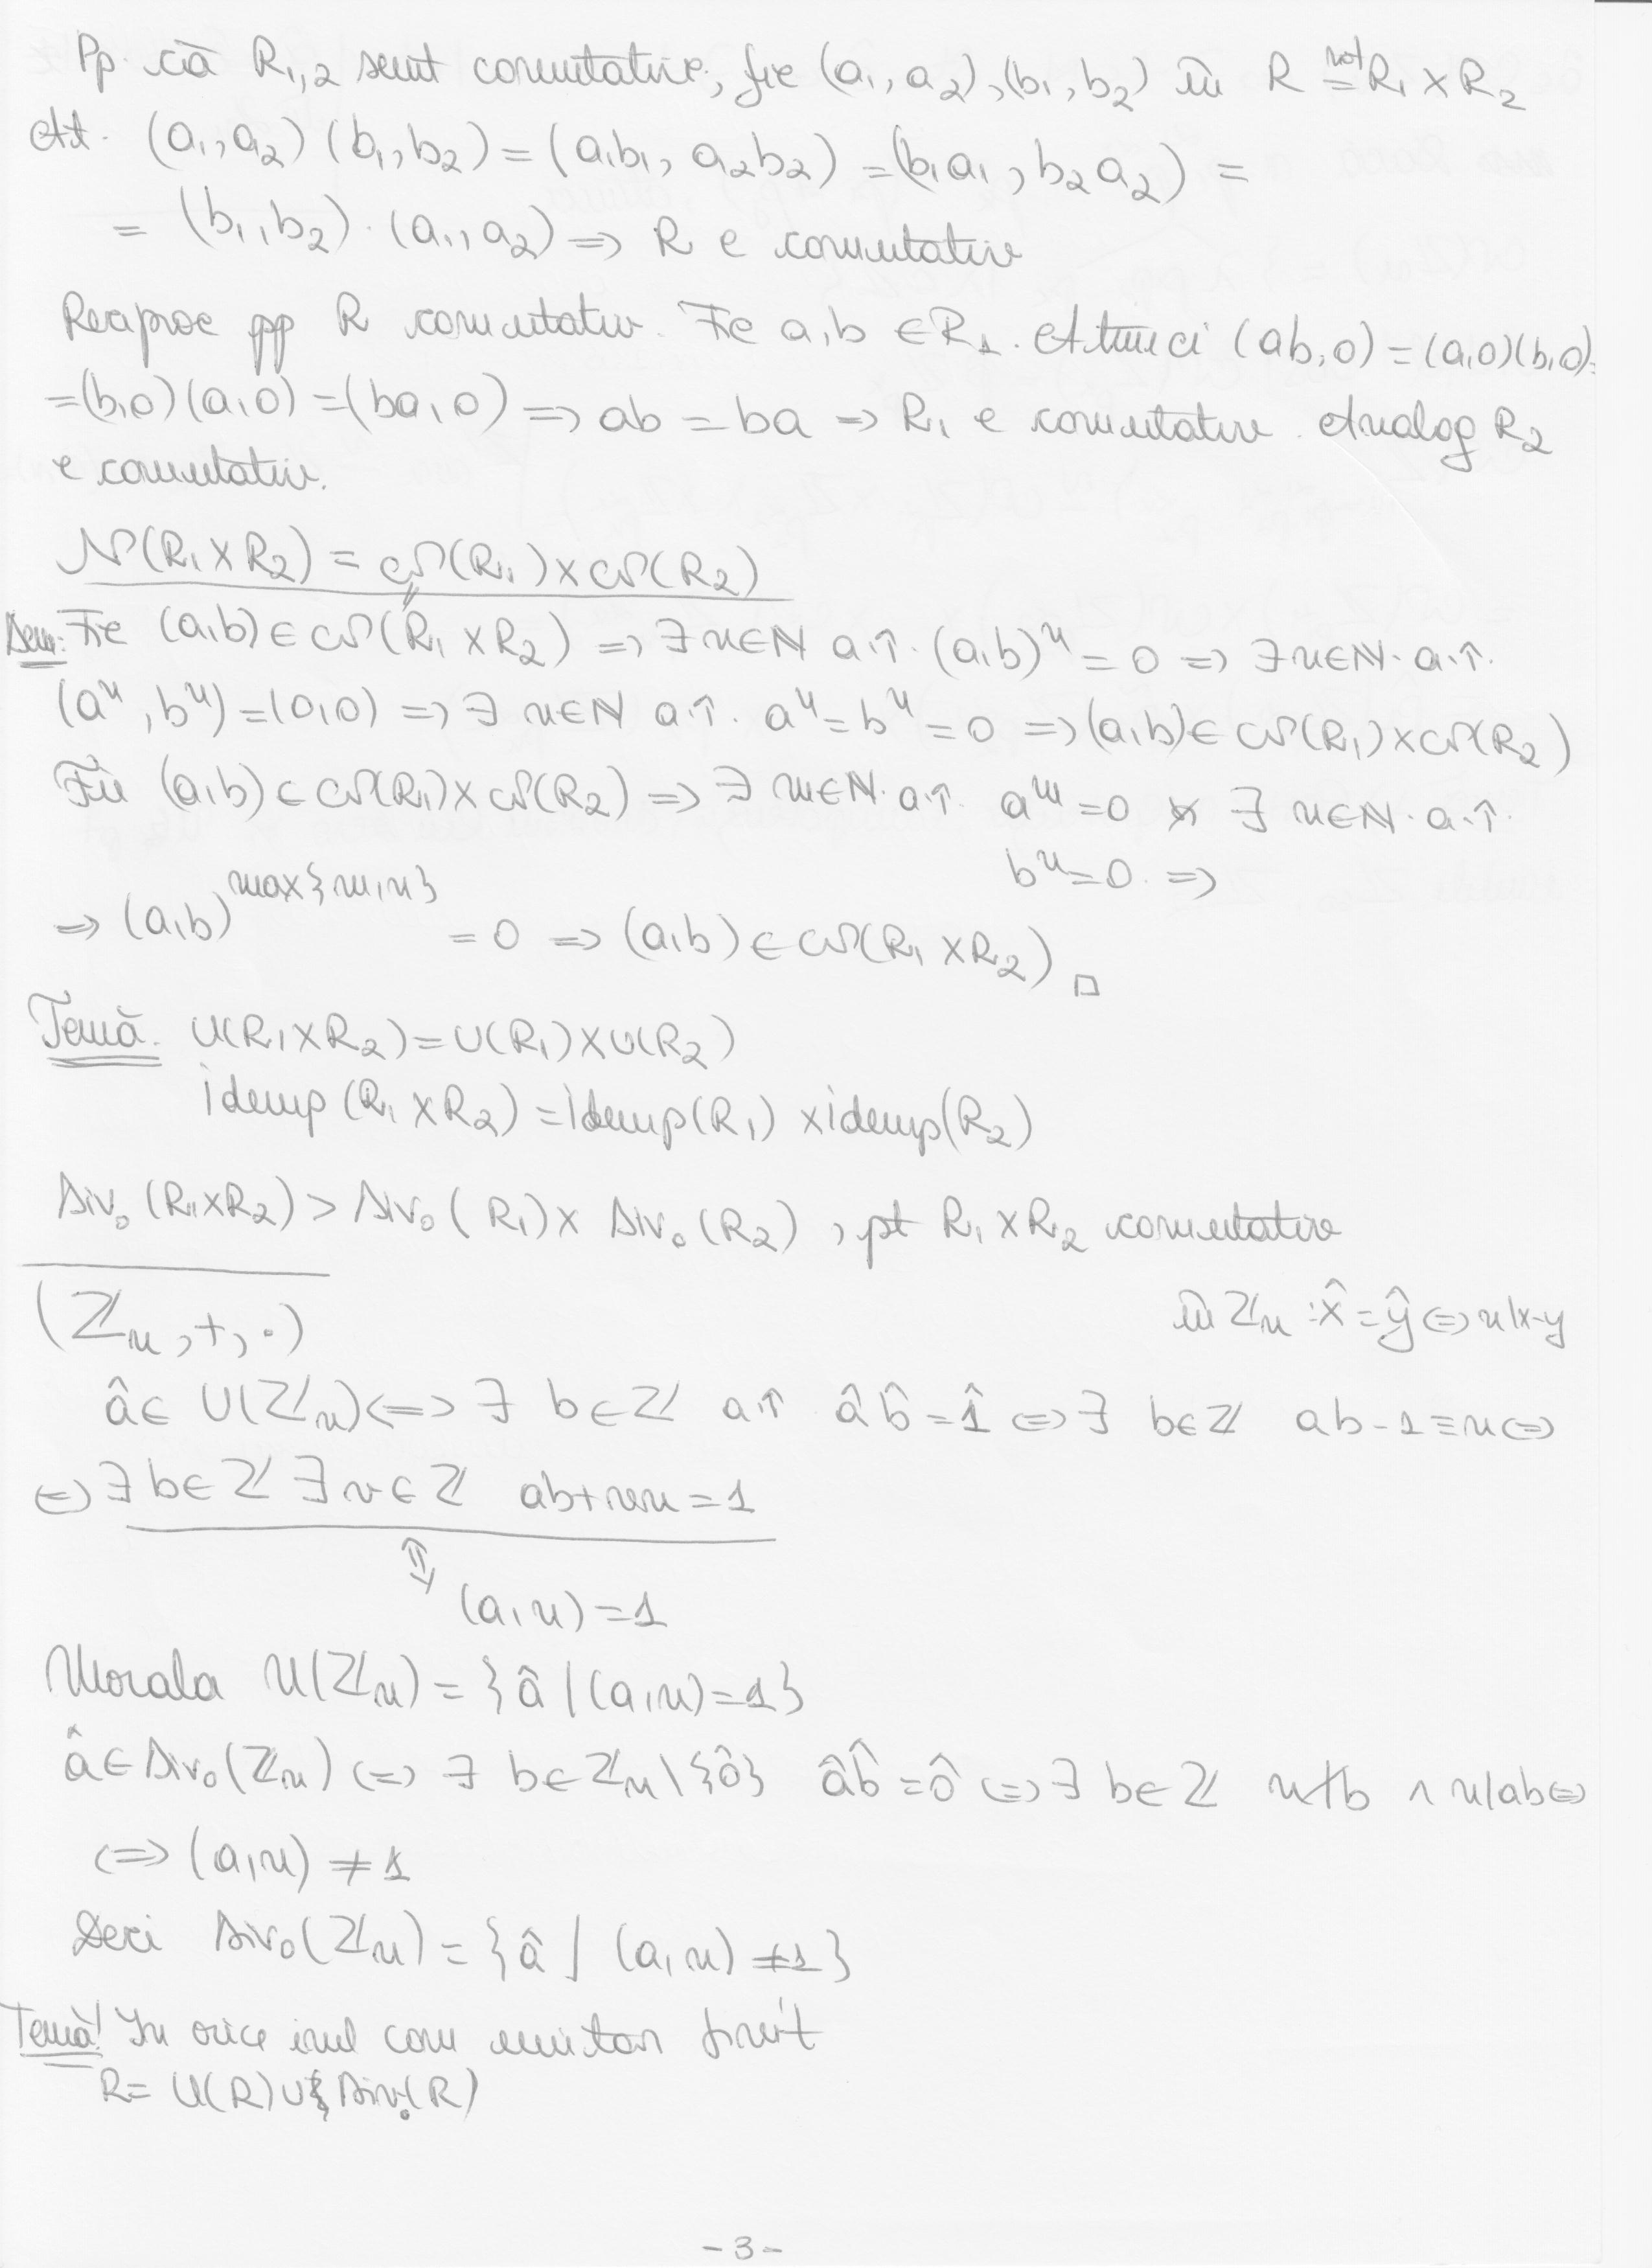 Pp. că R₁,₂ sunt comutative, fie (a₁, a₂), (b₁, b₂) în R not= R₁ × R₂
At. (a₁, a₂) (b₁, b₂) = (a₁b₁, a₂b₂) = (b₁a₁, b₂a₂) =
= (b₁, b₂) · (a₁, a₂) => R e comutativ
Reciproc pp R comutativ. Fie a, b ∈ R₁. Atunci (ab, 0) = (a, 0)(b, 0) =
= (b, 0)(a, 0) = (ba, 0) => ab = ba => R₁ e comutativ. Analog R₂
e comutativ.
N(R₁ × R₂) = N(R₁) × N(R₂)
Dem: Fie (a, b) ∈ N(R₁ × R₂) => ∃ n ∈ N a.î. (a, b)ⁿ = 0 => ∃ n ∈ N* a.î.
(aⁿ, bⁿ) = (0, 0) => ∃ n ∈ N a.î. aⁿ = bⁿ = 0 => (a, b) ∈ N(R₁) × N(R₂)
Fie (a, b) ∈ N(R₁) × N(R₂) => ∃ m ∈ N* a.î. aᵐ = 0 și ∃ n ∈ N* a.î.
bⁿ = 0. =>
=> (a, b)^max{m, n} = 0 => (a, b) ∈ N(R₁ × R₂) □
Temă. U(R₁ × R₂) = U(R₁) × U(R₂)
idemp (R₁ × R₂) = idemp(R₁) × idemp(R₂)
Div₀ (R₁ × R₂) > Div₀ (R₁) × Div₀ (R₂), pt R₁ × R₂ comutative
(Zₙ, +, ·)
în Zₙ : x̂ = ŷ <=> n | x-y
â ∈ U(Zₙ) <=> ∃ b ∈ Z a.î â b̂ = 1̂ <=> ∃ b ∈ Z ab - 1 = n <=>
<=> ∃ b ∈ Z ∃ v ∈ Z ab + nv = 1
⇕
(a, n) = 1
Morala U(Zₙ) = {â | (a, n) = 1}
â ∈ Div₀(Zₙ) <=> ∃ b ∈ Zₙ \ {0̂} â b̂ = 0̂ <=> ∃ b ∈ Z n ∤ b ∧ n | ab <=>
<=> (a, n) ≠ 1
Deci Div₀(Zₙ) = {â | (a, n) ≠ 1}
Temă! În orice inel com unitar finit
R = U(R) ∪ Div₀(R)
- 3 -